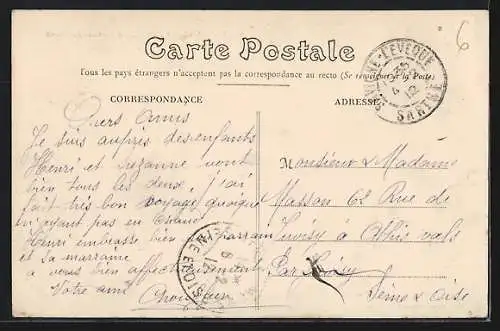 6
Carte Postale
Tous les pays étrangers n'acceptent pas la correspondance au recto (Se renseigner à la Poste)
SAVIGNÉ-L'ÉVÊQUE
12
SARTHE
CORRESPONDANCE
ADRESSE
Chers amis
Je suis auprès des enfants
Henri et Suzanne vont
bien tous les deux, j'ai
fait très bon voyage quoique
n'ayant pas eu
Henri embrasse bien parrain
et sa marraine
a vous bien affectueusement
Votre ami
Monsieur & Madame
Masson 62 Rue de
Juvisy à Athis vals
Par Juvisy
Seine & Oise